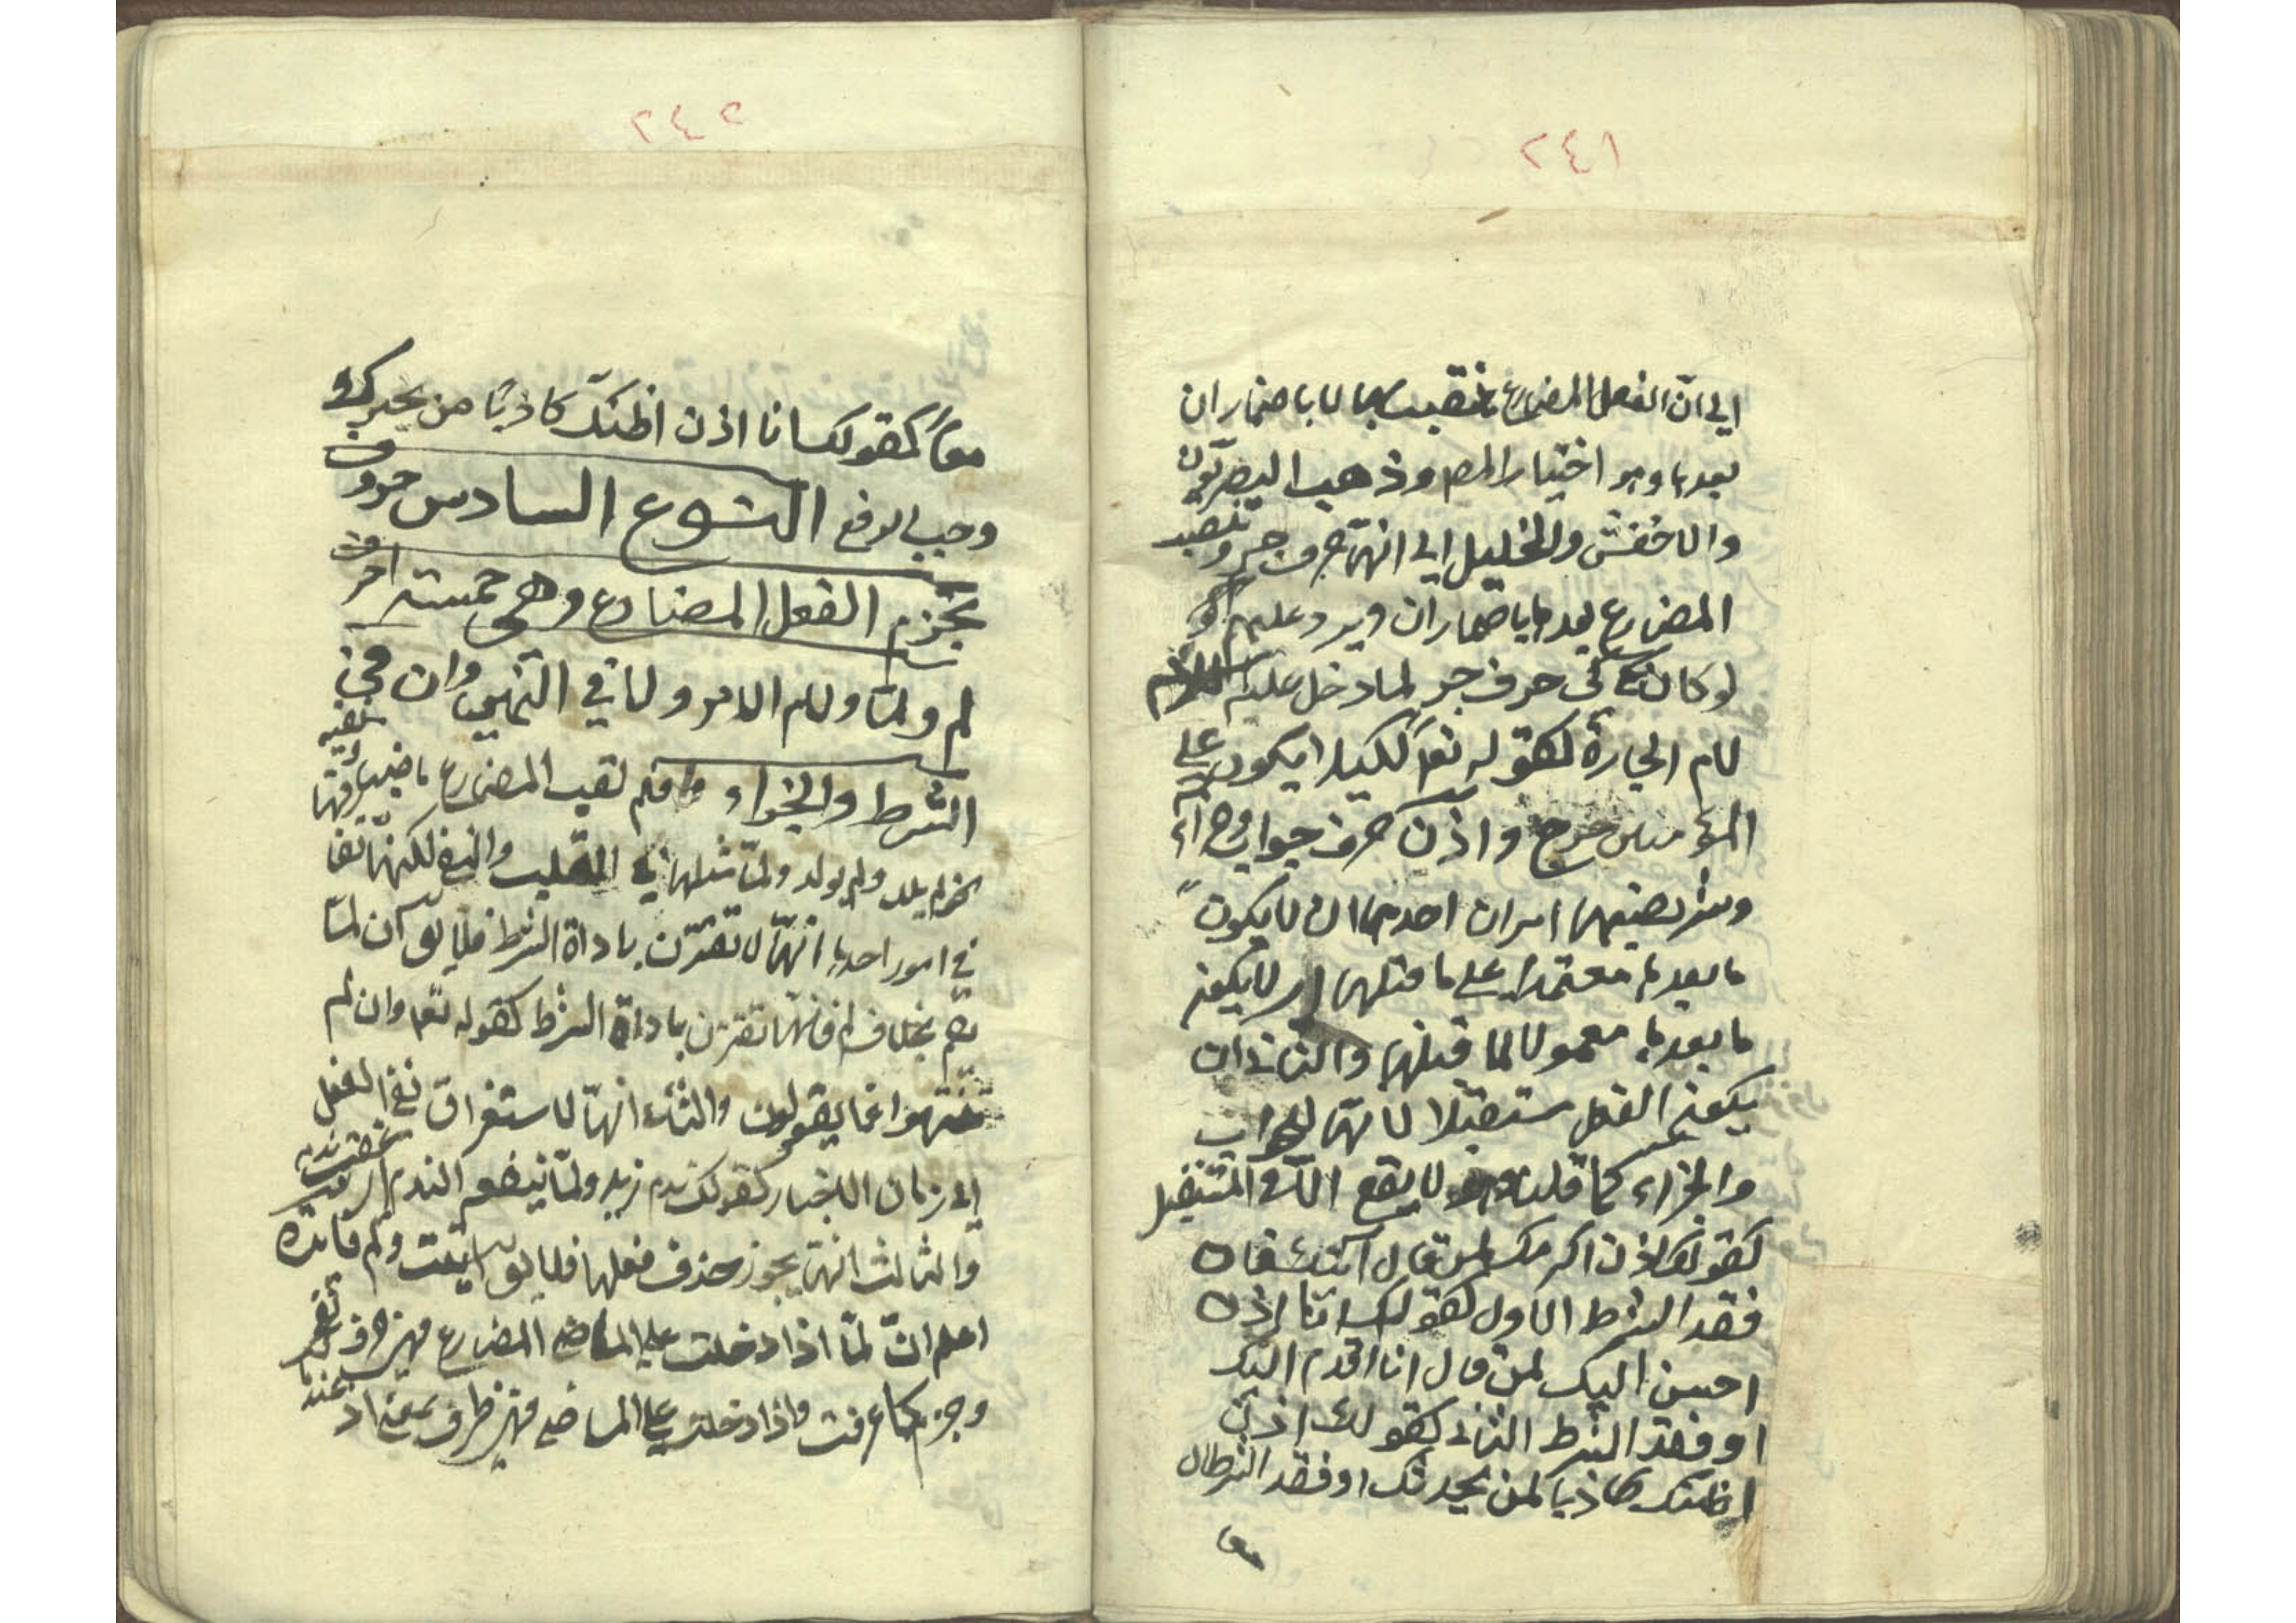 ٢٤١
الى ان الفعل المضارع منتصب بها لا باضمار ان
بعدها وهو اختيار المص وذهب البصريون
والاخفش والخليل الى انها حرف جر وتنصب
المضارع بعدها باضمار ان ويرد عليهم
لو كان كي حرف جر لما دخل عليه اللام
لام الجارة كقوله تع لكيلا يكون على
المؤمنين حرج واذن حرف جواب وجزاء
وشرط نصبها امران احدهما ان لا يكون
ما بعدها معتمدا على ما قبلها اى لا يكون
ما بعدها معمولا لما قبلها والثاني ان
يكون الفعل مستقبلا لانها للجواب
والجزاء كما قلنا وهو لا يقع الا في المستقبل
كقولك اذن اكرمك لمن قال آتيك فان
فقد الشرط الاول كقولك انا اذن
احسن اليك لمن قال انا اقدم اليك
او فقد الشرط الثاني كقولك اذن
اظنك كاذبا لمن يحدثك او فقد الشرطان
معا
٢٤٢
معاً كقولك انا اذن اظنك كاذباً من يخبرك
وجب الرفع النوع السادس حروف
تجزم الفعل المضارع وهي خمسة احرف
لم ولما ولام الامر ولا في النهي وان في
الشرط والجزاء فلم لقلب المضارع ماضيا ونفيه
نحو لم يلد ولم يولد ولما مثلها في القلب والنفي لكنها تفا
في امور احدها انها لا تقترن باداة الشرط فلا يق ان لما
تقم بخلاف لم فانها تقترن باداة الشرط كقوله تع وان لم
ينتهوا عما يقولون والثاني انها لاستغراق نفي الفعل
الى زمان الاخبار كقولك ندم زيد ولما ينفعه الندم
والثالث انها يجوز حذف فعلها فلا يق
اعلم ان لما اذا دخلت على المضارع فهي حرف نفي
وجزم كما عرفت واذا دخلت على الماضي فهي ظرف بمعنى اذ عند